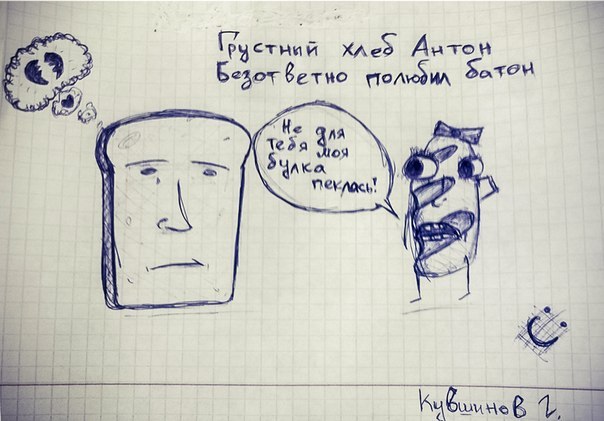 Грустний хлеб Антон
Безответно полюбил батон
Не для
тебя моя
булка
пеклась!
Кувшинов Г.